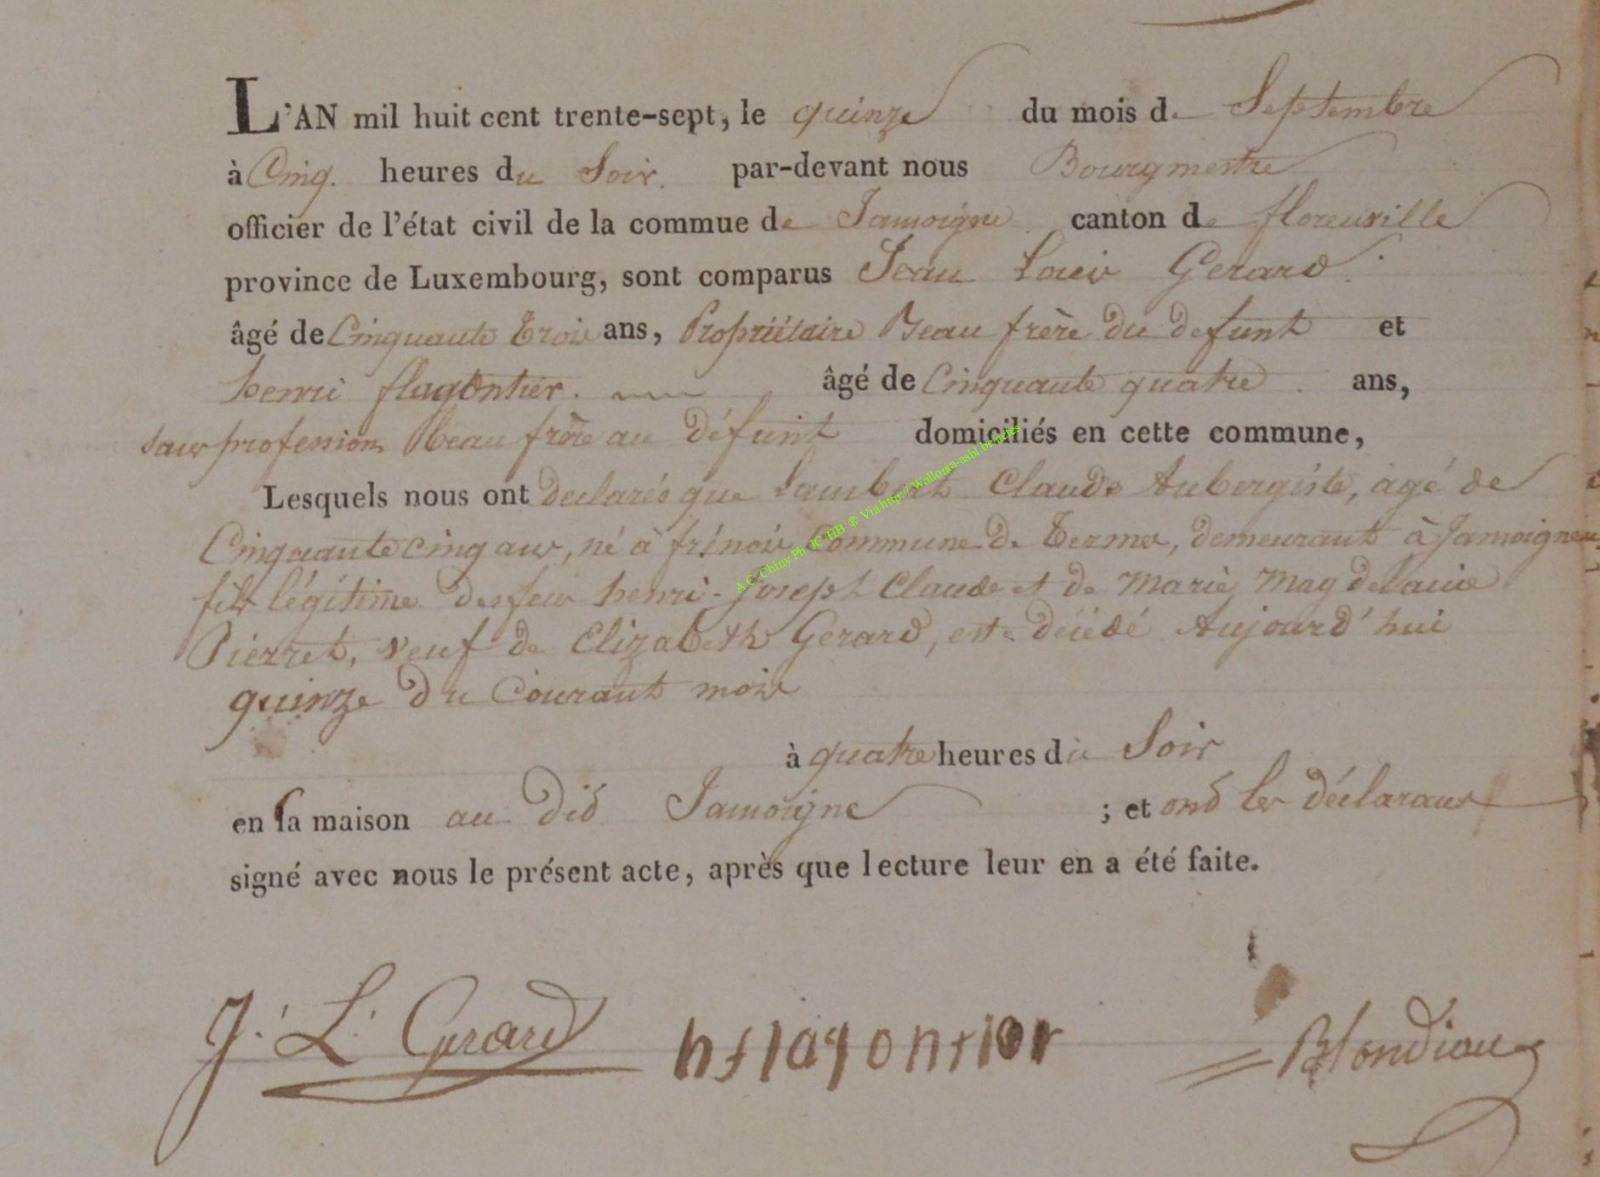 L'AN mil huit cent trente-sept, le quinze du mois de Septembre
à Cinq. heures du Soir. par-devant nous Bourgmestre
officier de l'état civil de la commue de Jamoigne canton de florenville
province de Luxembourg, sont comparus Jean Louis Gerard.
âgé de Cinquante Trois ans, Propriétaire Beau frère du defunt et
henri flagontier. âgé de Cinquante quatre ans,
sans profession Beau frère au défunt domiciliés en cette commune,
Lesquels nous ont declarés que Lambert Claude Aubergiste, agé de
Cinquante cinq ans, né à frénois Commune de Termes, demeurant à Jamoigne
fils légitime des feus henri-Joseph Claude et de Marie Magdelaine
Pierret, veuf de Elizabeth Gerard, est décédé Aujourd'hui
quinze du Courant mois
à quatre heures du Soir
en sa maison au Did Jamoigne ; et ond les déclarans
signé avec nous le présent acte, après que lecture leur en a été faite.
J. L. Gerard hflagontier Blondiau